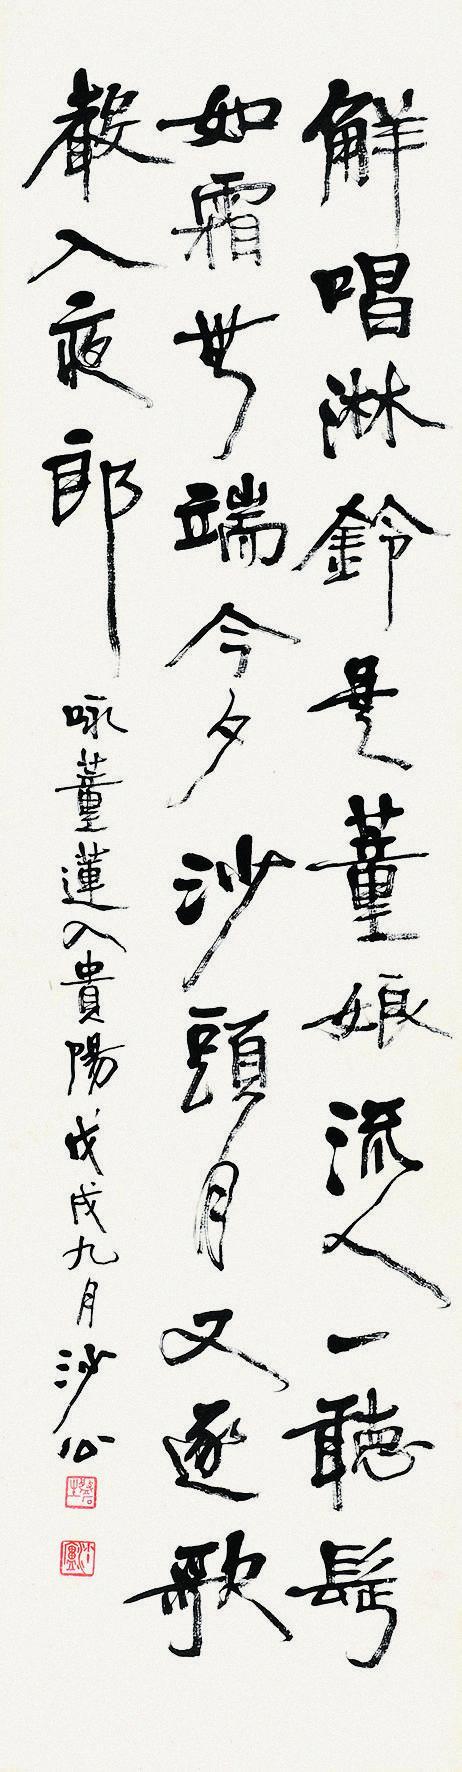 解唱淋鈴是董娘流人一聽鬢
如霜無端今夕沙頭月又逐歌
聲入夜郎
咏董蓮入貴陽戊戌九月沙公